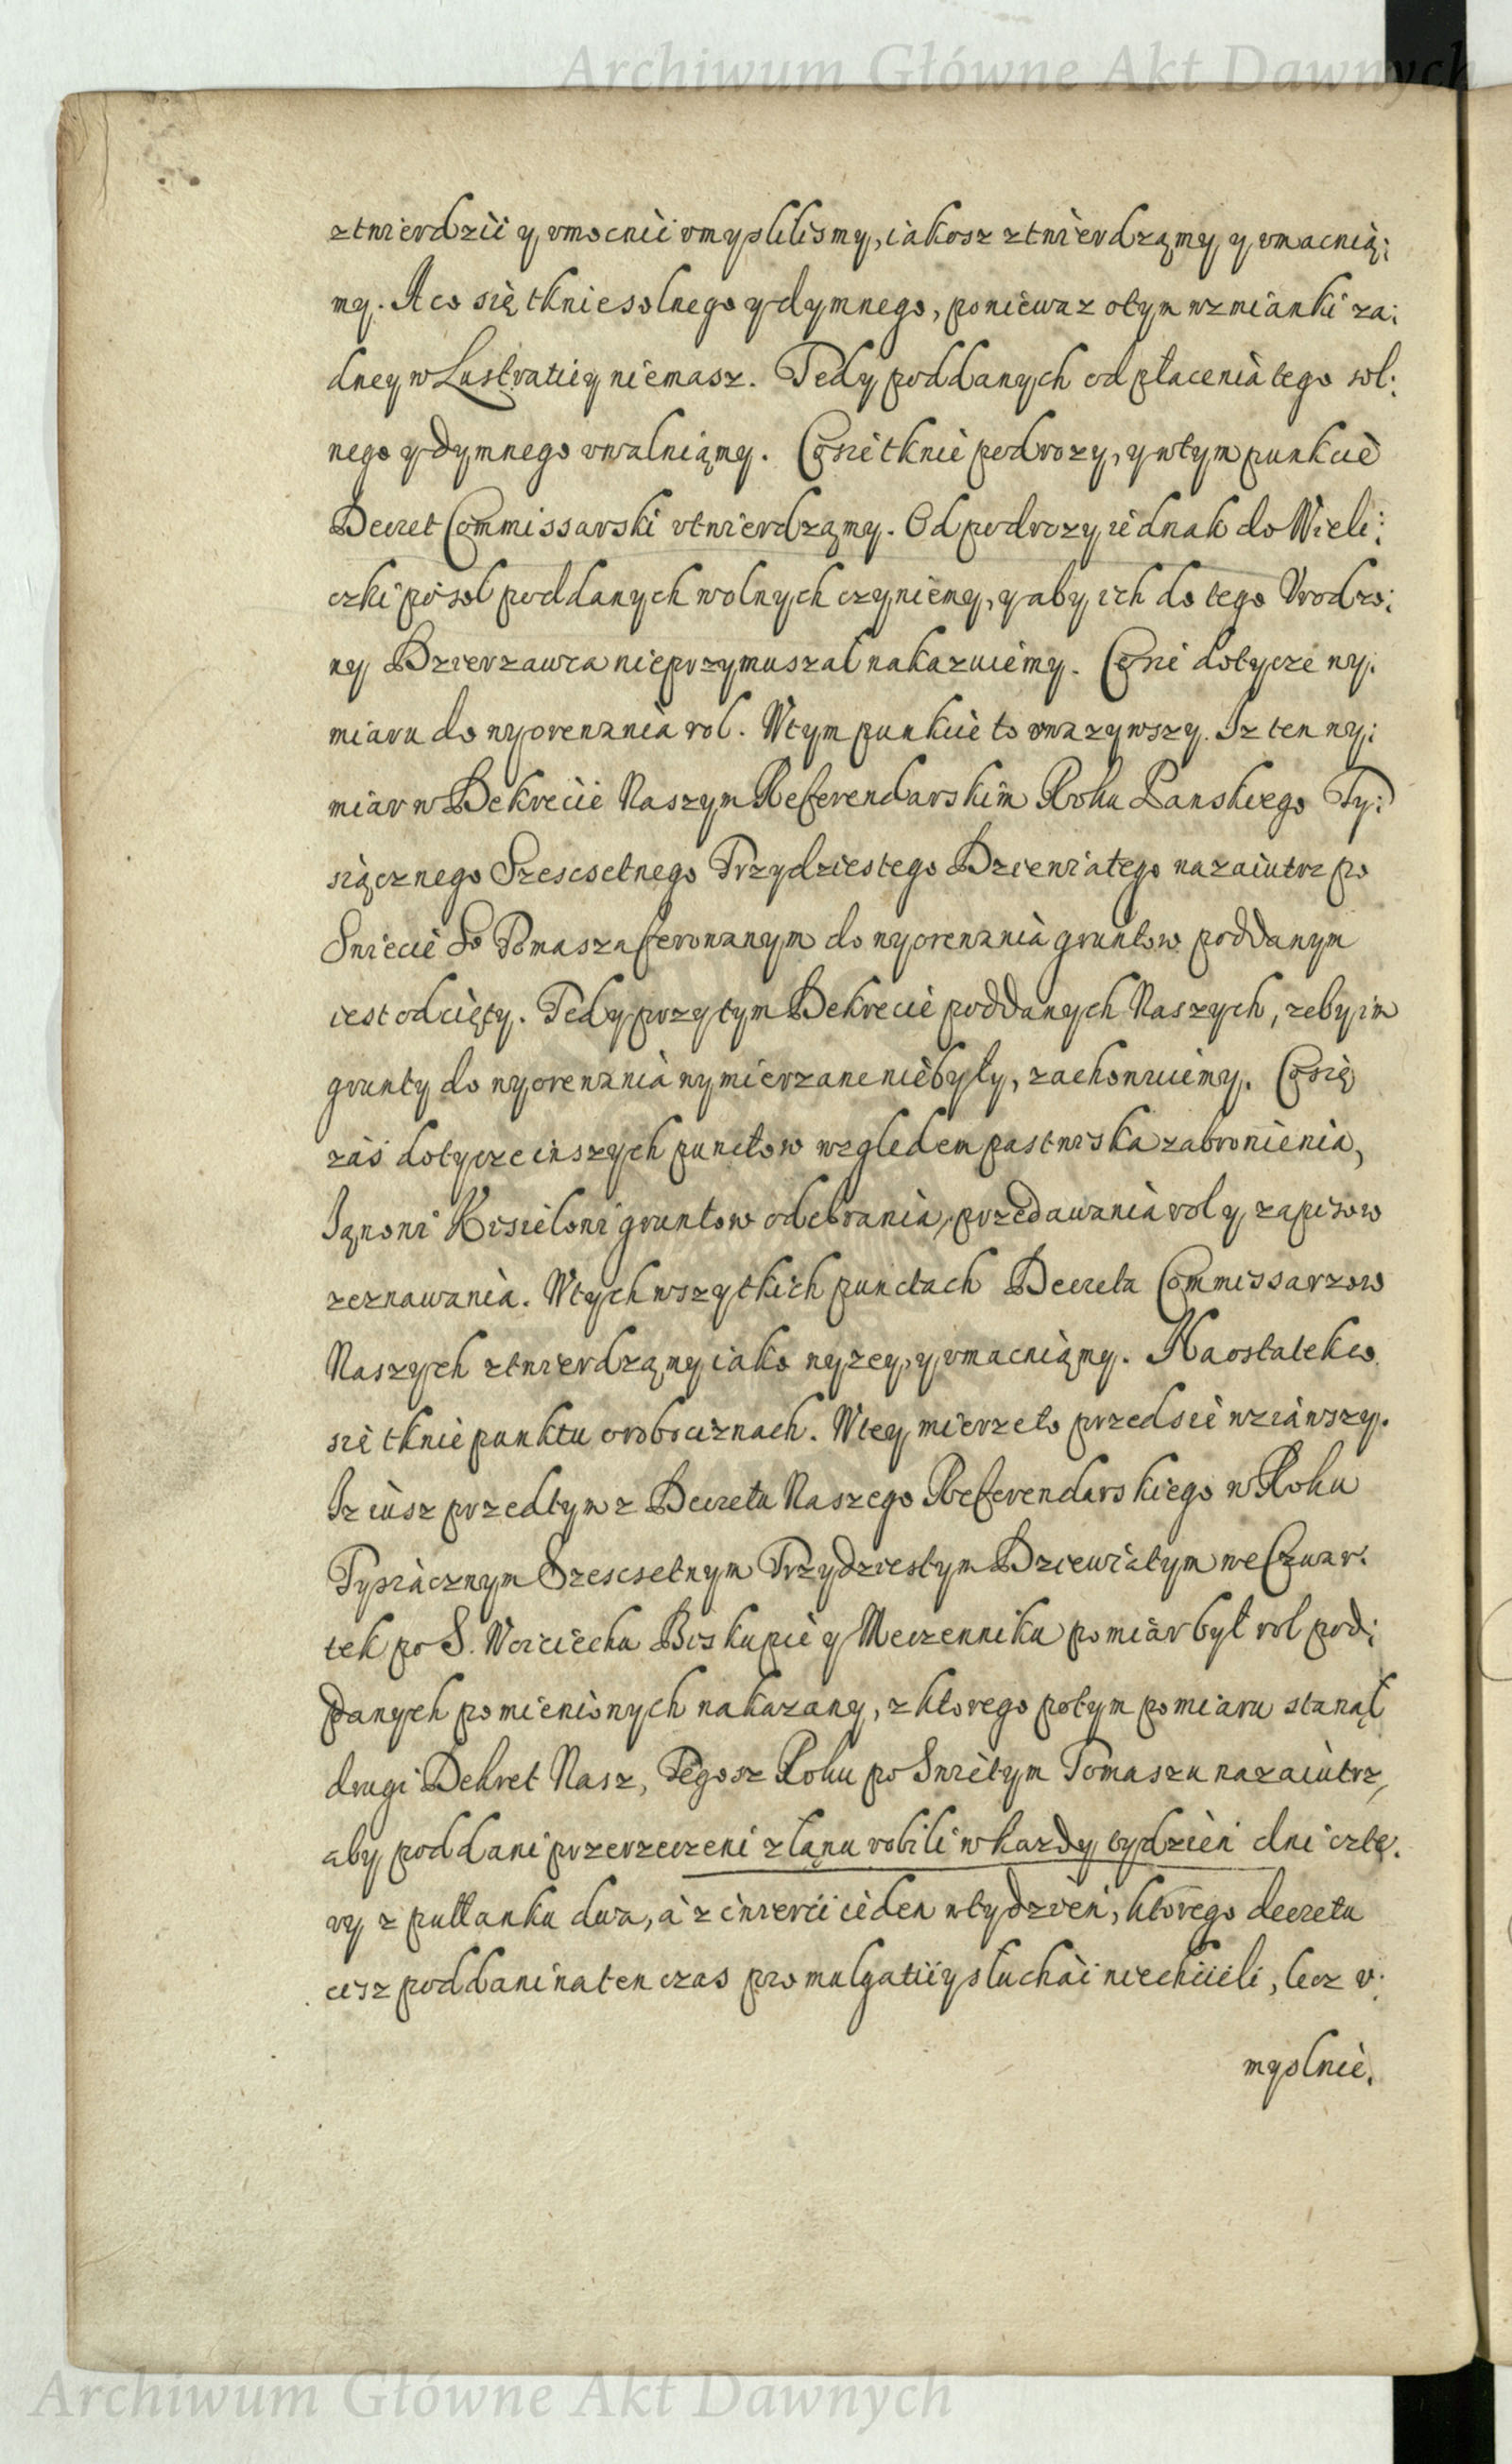 Archiwum Główne Akt Dawnych
ztwierdzić y vmocnić vmyslilismy, iakosz ztwierdząmy y vmacnią:
my. A co się tknie solnego y dymnego, poniewaz o tym wzmianki za:
dney w Lustratiey niemasz. Tedy poddanych od płacenia tego sol:
nego y dymnego vwalniąmy. Co sie tknie podrozy, y w tym punkcie
Decret Commissarski vtwierdząmy. Od podrozy iednak do Wieli:
czki po sol poddanych wolnych czyniemy, y aby ich do tego Vrodzo:
ny Dzierzawca nieprzymuszał nakazuiemy. Co sie dotycze wy:
miaru do wyorewania rol. W tym punkcie to vwazywszy. Iz ten wy:
miar w Dekrecie Naszym Referendarskim Roku Panskiego Ty:
siącznego Szescsetnego Trzydziestego Dziewiatego nazaiutrz po
Swiecie So Tomasza ferowanym do wyorewania gruntow poddanym
iest odcięty. Tedy przy tym Dekrecie poddanych Naszych, zeby im
grunty do wyorewania wymierzane niebyły, zachowuiemy. Co się
zaś dotycze inszych punctow względem pastwiska zabronienia,
Iąnowi Kisielowi gruntow odebrania, przedawania rol y zapisow
zeznawania. W tych wszytkich punctach Decreta Commissarzow
Naszych ztwierdząmy iako wyzey, y vmacniąmy. Na ostatek co
sie tknie punktu o robociznach. W tey mierze to przed sie wziąwszy.
Iz iusz przedtym z Decretu Naszego Referendarskiego w Roku
Tysiącznym Szescsetnym Trzydziestym Dziewiatym we Czwar:
tek po S. Woiciechu Biskupie y Meczenniku pomiar był rol pod:
danych pomienionych nakazany, z ktorego potym pomiaru stanął
drugi Dekret Nasz, Tegosz Roku po Swiętym Tomaszu nazaiutrz,
aby poddani przerzeczeni z łąnu robili w kazdy tydzień dni czte:
ry z pułłanku dwa, a z ćwierći ieden w tydzień, ktorego decretu
cisz poddani na ten czas promulgatiiy słuchać niechcieli, lecz v:
myslnie.
Archiwum Główne Akt Dawnych